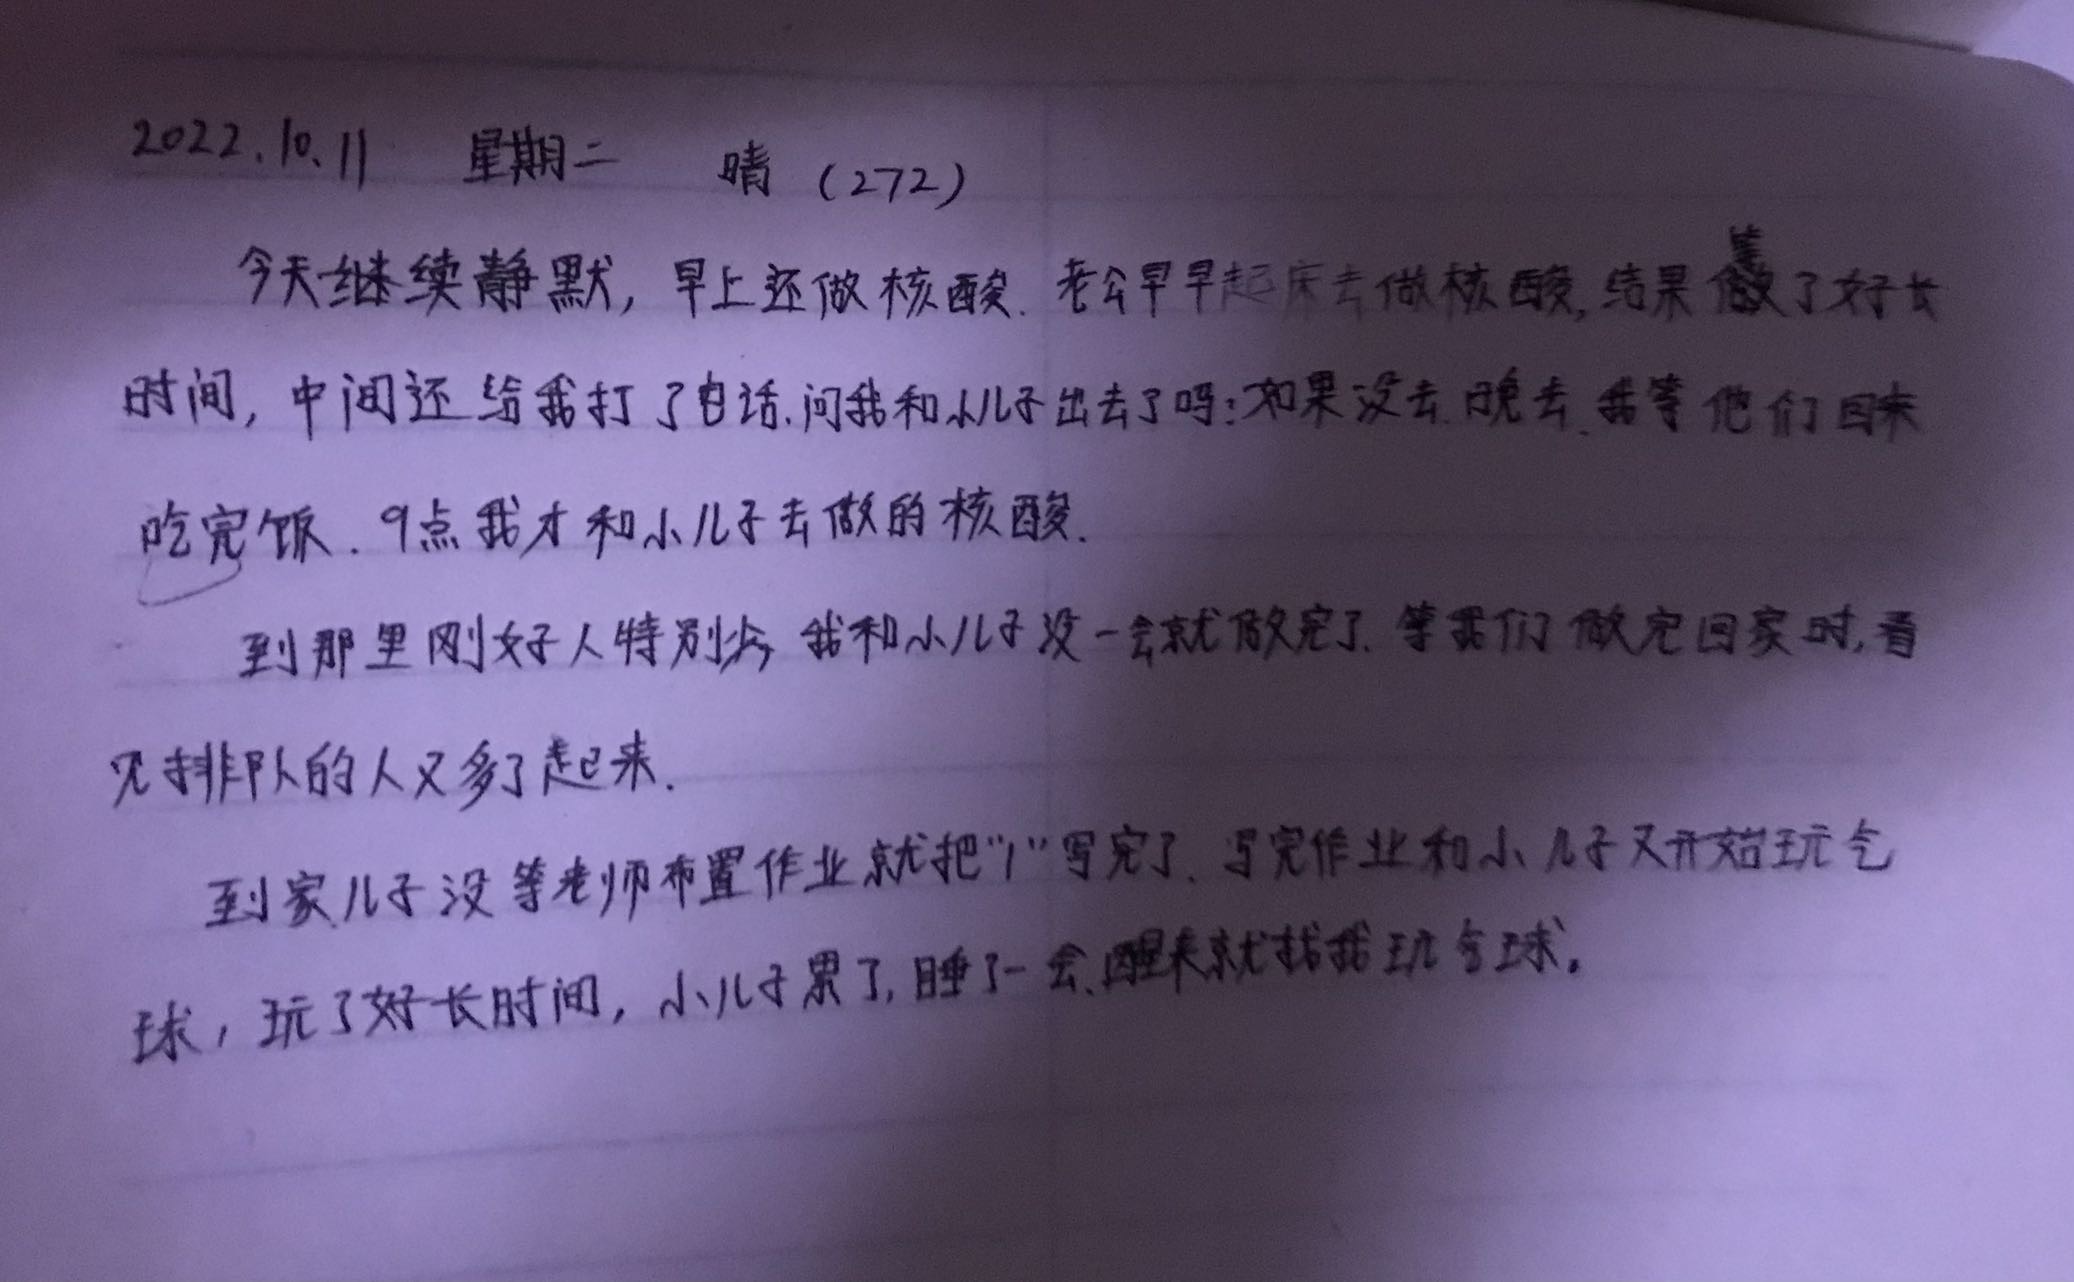 2022.10.11 星期二 晴 (272)
今天继续静默,早上还做核酸.老公早早起床去做核酸,结果等了好长
时间,中间还给我打了电话.问我和小儿子出去了吗:如果没去.晚去.我等他们回来
吃完饭.9点我才和小儿子去做的核酸.
到那里刚好人特别少,我和小儿子没一会就做完了.等我们做完回家时,看
见排队的人又多了起来.
到家儿子没等老师布置作业就把"1"写完了.写完作业和小儿子又开始玩气
球,玩了好长时间,小儿子累了,睡了一会.醒来就找我玩气球。